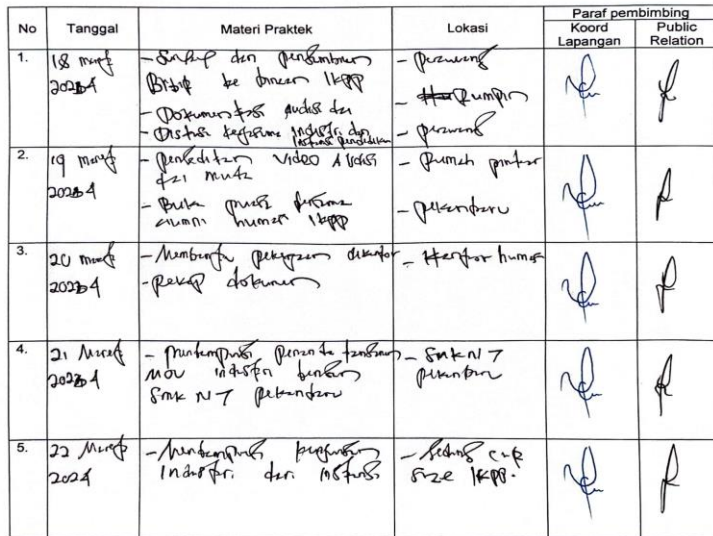 No Tanggal Materi Praktek Lokasi Paraf pembimbing
Koord Lapangan Public Relation
1. 18 Maret 2024
- dan
ke IKPP
- Dokumentasi Audisi dai
- Diskusi kerjasama industri dan
instansi pendidikan
- perawang
- Rumpin
- perawang
2. 19 Maret 2024
- pengeditan video Audisi
dai muda
- Buka puasa bersama
alumni humas IKPP
- Rumah pintar
- pekanbaru
3. 20 Maret 2024
- Membantu pekerjaan dikantor
- rekap dokumen
- Kantor humas
4. 21 Maret 2024
- penanda tanganan
MOU industri dengan
SMK N 7 pekanbaru
- SMK N 7
pekanbaru
5. 22 Maret 2024
- kunjungan
industri dari instansi
- size IKPP.